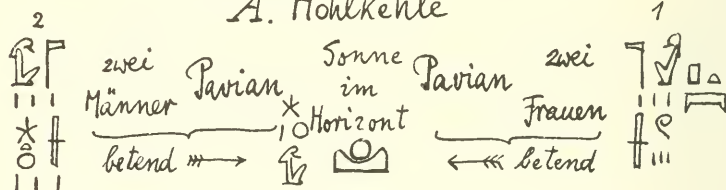 A. Hohlkehle
2 1
zwei Männer Pavian Sonne im Horizont Pavian zwei Frauen
betend betend